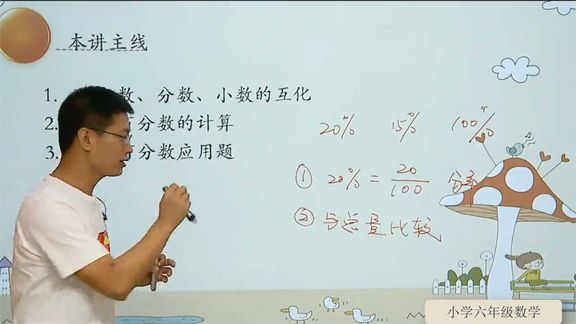 本讲主线
1. 数、分数、小数的互化
2. 分数的计算
3. 分数应用题
20% 15% 100%
① 20% = 20/100
② 与总量比较
小学六年级数学